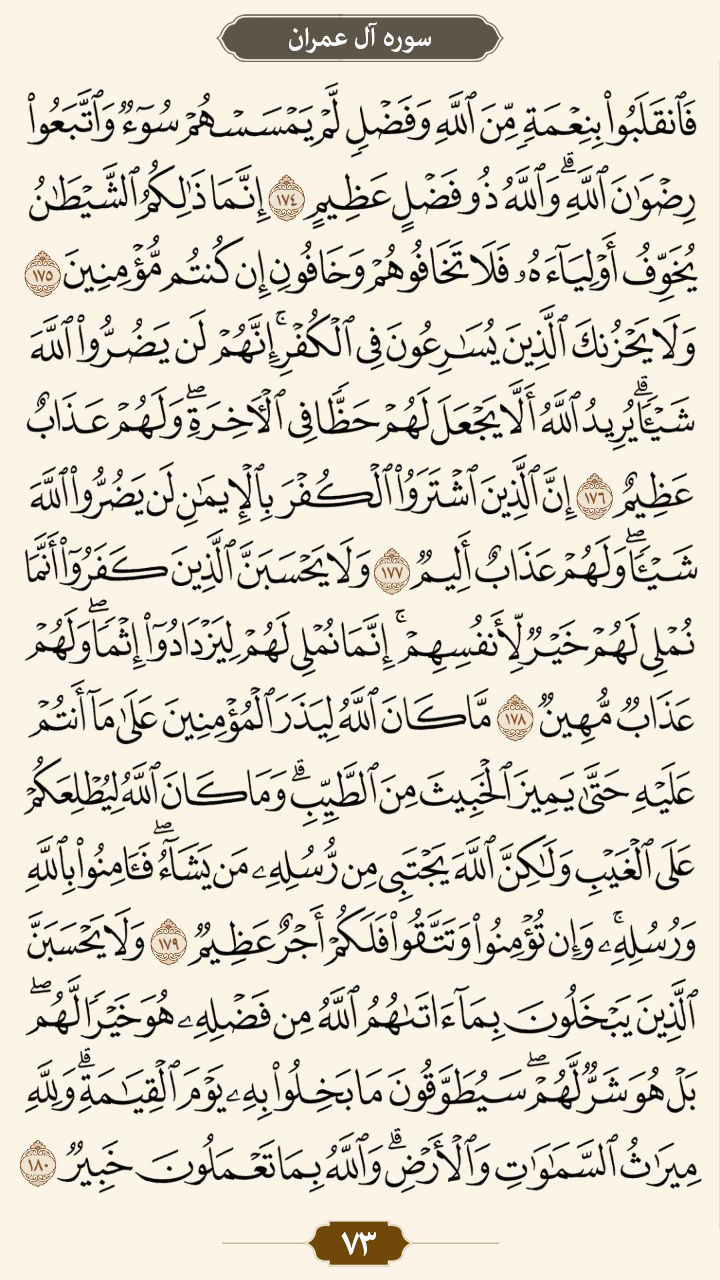 سوره آل عمران
فَٱنقَلَبُوا۟ بِنِعْمَةٍ مِّنَ ٱللَّهِ وَفَضْلٍ لَّمْ يَمْسَسْهُمْ سُوٓءٌ وَٱتَّبَعُوا۟
رِضْوَٰنَ ٱللَّهِ ۗ وَٱللَّهُ ذُو فَضْلٍ عَظِيمٍ ١٧٤ إِنَّمَا ذَٰلِكُمُ ٱلشَّيْطَٰنُ
يُخَوِّفُ أَوْلِيَآءَهُۥ فَلَا تَخَافُوهُمْ وَخَافُونِ إِن كُنتُم مُّؤْمِنِينَ ١٧٥
وَلَا يَحْزُنكَ ٱلَّذِينَ يُسَٰرِعُونَ فِى ٱلْكُفْرِ ۚ إِنَّهُمْ لَن يَضُرُّوا۟ ٱللَّهَ
شَيْـًٔا ۗ يُرِيدُ ٱللَّهُ أَلَّا يَجْعَلَ لَهُمْ حَظًّا فِى ٱلْـَٔاخِرَةِ ۖ وَلَهُمْ عَذَابٌ
عَظِيمٌ ١٧٦ إِنَّ ٱلَّذِينَ ٱشْتَرَوُا۟ ٱلْكُفْرَ بِٱلْإِيمَٰنِ لَن يَضُرُّوا۟ ٱللَّهَ
شَيْـًٔا ۖ وَلَهُمْ عَذَابٌ أَلِيمٌ ١٧٧ وَلَا يَحْسَبَنَّ ٱلَّذِينَ كَفَرُوٓا۟ أَنَّمَا
نُمْلِى لَهُمْ خَيْرٌ لِّأَنفُسِهِمْ ۚ إِنَّمَا نُمْلِى لَهُمْ لِيَزْدَادُوٓا۟ إِثْمًا ۖ وَلَهُمْ
عَذَابٌ مُّهِينٌ ١٧٨ مَّا كَانَ ٱللَّهُ لِيَذَرَ ٱلْمُؤْمِنِينَ عَلَىٰ مَآ أَنتُمْ
عَلَيْهِ حَتَّىٰ يَمِيزَ ٱلْخَبِيثَ مِنَ ٱلطَّيِّبِ ۗ وَمَا كَانَ ٱللَّهُ لِيُطْلِعَكُمْ
عَلَى ٱلْغَيْبِ وَلَٰكِنَّ ٱللَّهَ يَجْتَبِى مِن رُّسُلِهِۦ مَن يَشَآءُ ۖ فَـَٔامِنُوا۟ بِٱللَّهِ
وَرُسُلِهِۦ ۚ وَإِن تُؤْمِنُوا۟ وَتَتَّقُوا۟ فَلَكُمْ أَجْرٌ عَظِيمٌ ١٧٩ وَلَا يَحْسَبَنَّ
ٱلَّذِينَ يَبْخَلُونَ بِمَآ ءَاتَىٰهُمُ ٱللَّهُ مِن فَضْلِهِۦ هُوَ خَيْرًا لَّهُم ۖ
بَلْ هُوَ شَرٌّ لَّهُمْ ۖ سَيُطَوَّقُونَ مَا بَخِلُوا۟ بِهِۦ يَوْمَ ٱلْقِيَٰمَةِ ۗ وَلِلَّهِ
مِيرَٰثُ ٱلسَّمَٰوَٰتِ وَٱلْأَرْضِ ۗ وَٱللَّهُ بِمَا تَعْمَلُونَ خَبِيرٌ ١٨٠
٧٣